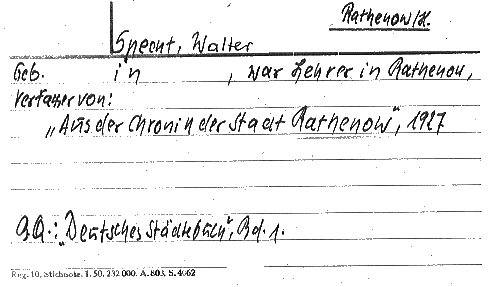 Rathenow/H.
Specht, Walter
Geb. in , war Lehrer in Rathenow,
Verfasser von:
„Aus der Chronik der Stadt Rathenow“, 1927
B.Q.: „Deutsches Städtebuch“, Bd. 1.
Reg. 10, Stichnote. 1. 50. 232 000. A. 803, S. 4062